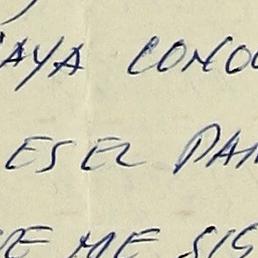 AYA CONO
ES EL PA
E ME SIG